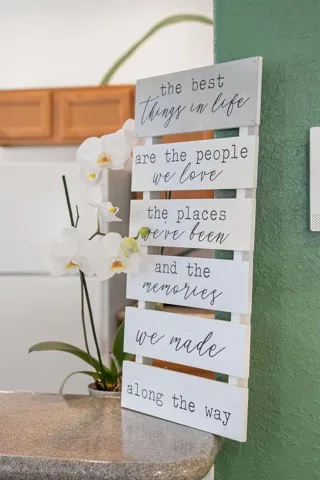 the best
things in life
are the people
we love
the places
we've been
and the
memories
we made
along the way